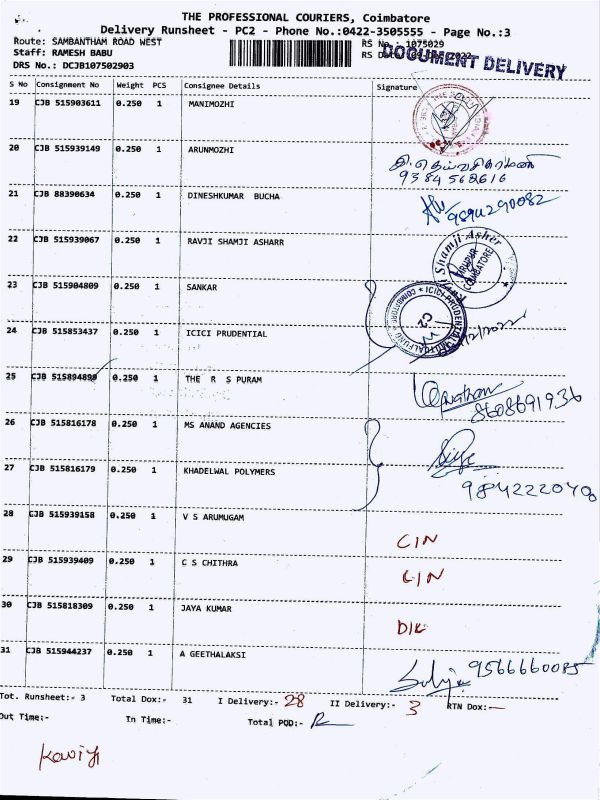 THE PROFESSIONAL COURIERS, Coimbatore
Delivery Runsheet - PC2 - Phone No.:0422-3505555 - Page No.:3
Route: SAMBANTHAM ROAD WEST
RS No.: 1075029
Staff: RAMESH BABU
RS Date
DOCUMENT DELIVERY
DRS No.: DCJB107502903
S No Consignment No Weight PCS Consignee Details Signature
19 CJB 515903611 0.250 1 MANIMOZHI
20 CJB 515939149 0.250 1 ARUNMOZHI
9384568616
21 CJB 88390634 0.250 1 DINESHKUMAR BUCHA
9894290082
22 CJB 515939067 0.250 1 RAVJI SHAMJI ASHARR
Shamji Asher
COIMBATORE
23 CJB 515904809 0.250 1 SANKAR
24 CJB 515853437 0.250 1 ICICI PRUDENTIAL
ICICI PRUDENTIAL MUTUAL FUND * COIMBATORE *
C2
/12/2022
25 CJB 515894898 0.250 1 THE R S PURAM
8608691936
26 CJB 515816178 0.250 1 MS ANAND AGENCIES
27 CJB 515816179 0.250 1 KHADELWAL POLYMERS
9842220790
28 CJB 515939158 0.250 1 V S ARUMUGAM
CIN
29 CJB 515939409 0.250 1 C S CHITHRA
CIN
30 CJB 515818309 0.250 1 JAYA KUMAR
D/L
31 CJB 515944237 0.250 1 A GEETHALAKSI
9566660085
Tot. Runsheet:- 3 Total Dox:- 31 I Delivery:- 28 II Delivery:- 3 RTN Dox:- —
Out Time:- In Time:- Total POD:-